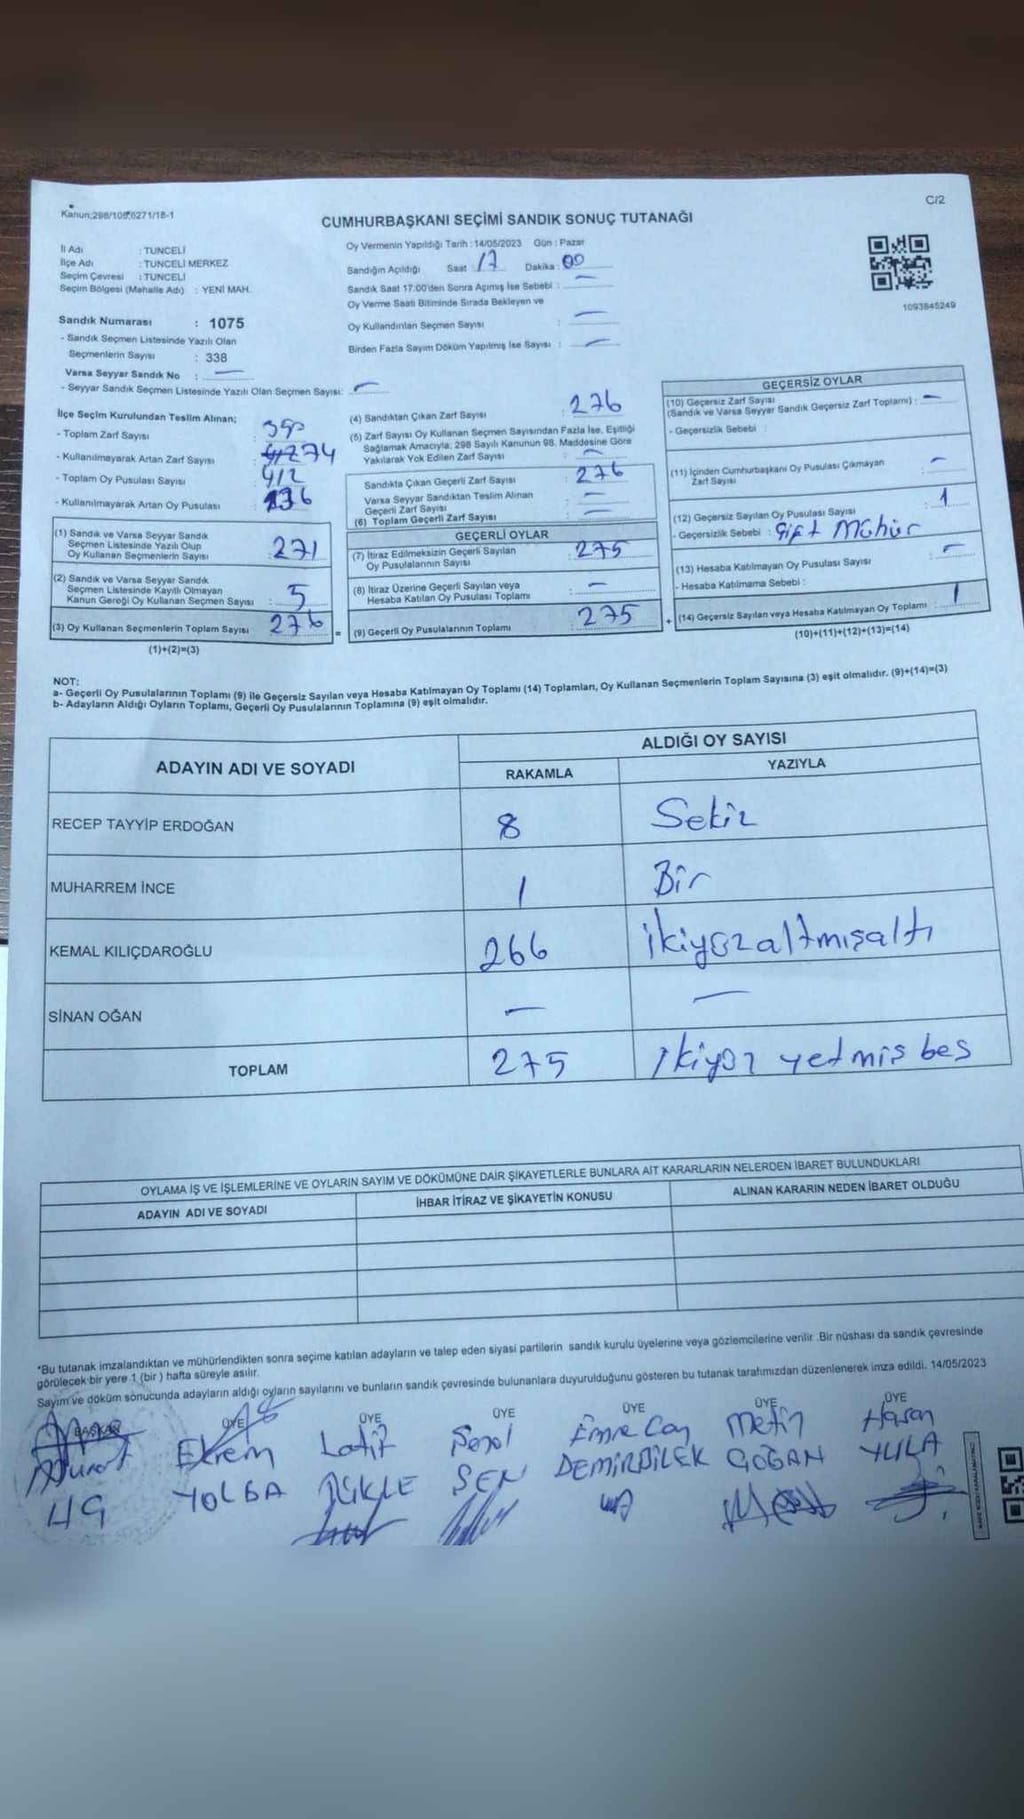 C/2
Kanun:298/105;6271/18-1
CUMHURBAŞKANI SEÇİMİ SANDIK SONUÇ TUTANAĞI
İl Adı : TUNCELİ
İlçe Adı : TUNCELİ MERKEZ
Seçim Çevresi : TUNCELİ
Seçim Bölgesi (Mahalle Adı) : YENİ MAH.
Sandık Numarası : 1075
- Sandık Seçmen Listesinde Yazılı Olan
Seçmenlerin Sayısı : 338
Varsa Seyyar Sandık No : —
- Seyyar Sandık Seçmen Listesinde Yazılı Olan Seçmen Sayısı: —
Oy Vermenin Yapıldığı Tarih : 14/05/2023 Gün : Pazar
Sandığın Açıldığı Saat 17 Dakika : 00
Sandık Saat 17:00'den Sonra Açımış İse Sebebi : —
Oy Verme Saati Bitiminde Sırada Bekleyen ve
Oy Kullandırılan Seçmen Sayısı : —
Birden Fazla Sayım Döküm Yapılmış İse Sayısı : —
1093845249
İlçe Seçim Kurulundan Teslim Alınan;
- Toplam Zarf Sayısı
- Kullanılmayarak Artan Zarf Sayısı 274
- Toplam Oy Pusulası Sayısı 412
- Kullanılmayarak Artan Oy Pusulası 136
(1) Sandık ve Varsa Seyyar Sandık
Seçmen Listesinde Yazılı Olup
Oy Kullanan Seçmenlerin Sayısı : 271
(2) Sandık ve Varsa Seyyar Sandık
Seçmen Listesinde Kayıtlı Olmayan
Kanun Gereği Oy Kullanan Seçmen Sayısı : 5
(3) Oy Kullanan Seçmenlerin Toplam Sayısı 276
(1)+(2)=(3)
(4) Sandıktan Çıkan Zarf Sayısı : 276
(5) Zarf Sayısı Oy Kullanan Seçmen Sayısından Fazla İse, Eşitliği
Sağlamak Amacıyla, 298 Sayılı Kanunun 98. Maddesine Göre
Yakılarak Yok Edilen Zarf Sayısı : —
Sandıkta Çıkan Geçerli Zarf Sayısı : 276
Varsa Seyyar Sandıktan Teslim Alınan
Geçerli Zarf Sayısı : —
(6) Toplam Geçerli Zarf Sayısı : —
GEÇERLİ OYLAR
(7) İtiraz Edilmeksizin Geçerli Sayılan
Oy Pusulalarının Sayısı : 275
(8) İtiraz Üzerine Geçerli Sayılan veya
Hesaba Katılan Oy Pusulası Toplamı : —
= (9) Geçerli Oy Pusulalarının Toplamı : 275
GEÇERSİZ OYLAR
(10) Geçersiz Zarf Sayısı
(Sandık ve Varsa Seyyar Sandık Geçersiz Zarf Toplamı) : —
- Geçersizlik Sebebi :
(11) İçinden Cumhurbaşkanı Oy Pusulası Çıkmayan
Zarf Sayısı : —
(12) Geçersiz Sayılan Oy Pusulası Sayısı : 1
- Geçersizlik Sebebi : Çift Mühür
(13) Hesaba Katılmayan Oy Pusulası Sayısı : —
- Hesaba Katılmama Sebebi :
+ (14) Geçersiz Sayılan veya Hesaba Katılmayan Oy Toplamı : 1
(10)+(11)+(12)+(13)=(14)
NOT:
a- Geçerli Oy Pusulalarının Toplamı (9) ile Geçersiz Sayılan veya Hesaba Katılmayan Oy Toplamı (14) Toplamları, Oy Kullanan Seçmenlerin Toplam Sayısına (3) eşit olmalıdır. (9)+(14)=(3)
b- Adayların Aldığı Oyların Toplamı, Geçerli Oy Pusulalarının Toplamına (9) eşit olmalıdır.
ADAYIN ADI VE SOYADI ALDIĞI OY SAYISI
RAKAMLA YAZIYLA
RECEP TAYYİP ERDOĞAN 8 Sekiz
MUHARREM İNCE 1 Bir
KEMAL KILIÇDAROĞLU 266 İkiyüzaltmışaltı
SİNAN OĞAN — —
TOPLAM 275 İkiyüz yetmiş beş
OYLAMA İŞ VE İŞLEMLERİNE VE OYLARIN SAYIM VE DÖKÜMÜNE DAİR ŞİKAYETLERLE BUNLARA AİT KARARLARIN NELERDEN İBARET BULUNDUKLARI
ADAYIN ADI VE SOYADI İHBAR İTİRAZ VE ŞİKAYETİN KONUSU ALINAN KARARIN NEDEN İBARET OLDUĞU
*Bu tutanak imzalandıktan ve mühürlendikten sonra seçime katılan adayların ve talep eden siyasi partilerin sandık kurulu üyelerine veya gözlemcilerine verilir .Bir nüshası da sandık çevresinde
görülecek bir yere 1 (bir ) hafta süreyle asılır.
Sayım ve döküm sonucunda adayların aldığı oyların sayılarını ve bunların sandık çevresinde bulunanlara duyurulduğunu gösteren bu tutanak tarafımızdan düzenlenerek imza edildi. 14/05/2023
BAŞKAN ÜYE ÜYE ÜYE ÜYE ÜYE ÜYE
Murat Ekrem Latif Şenol Emre Can Metin Hasan
YOLGA SEN DEMİRDİLEK YULA